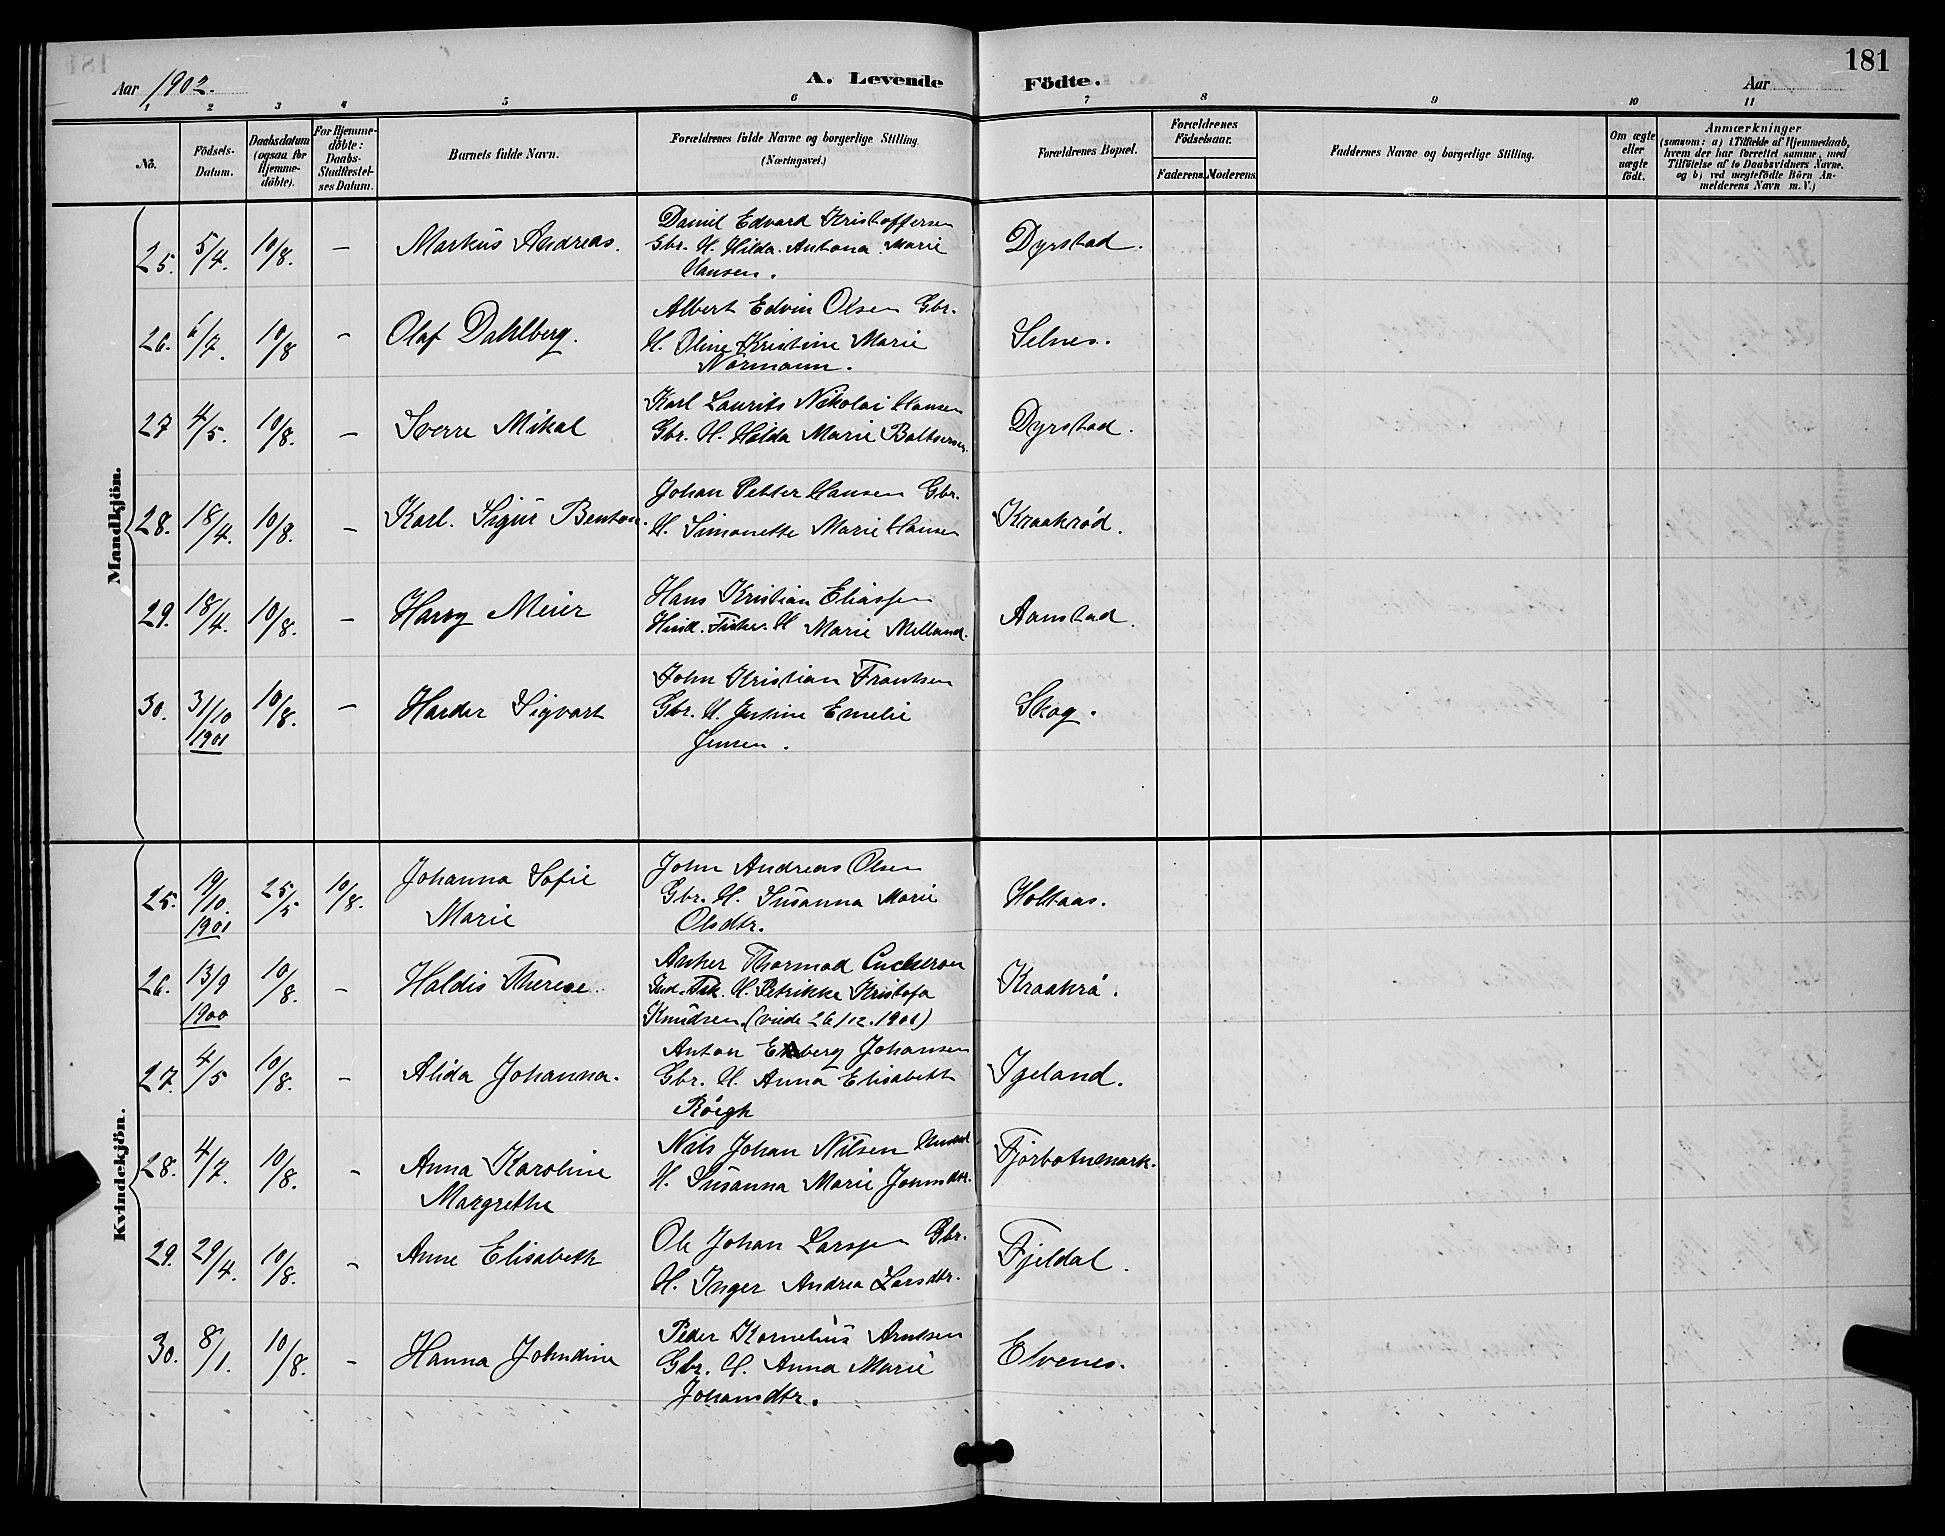 181
Aar 1902. A. Levende Födte. Aar
1 2 3 4 5 6 7 8 9 10 11
No. Födsels-Datum. Daabsdatum (ogsaa for Hjemme-döbte). For Hjemme-döbte: Daabs-Stadfæstel-ses Datum. Barnets fulde Navn. Forældrenes fulde Navne og borgerlige Stilling. (Næringsvei.) Forældrenes Bopæl. Forældrenes Födselsaar. Faderens. Moderens. Faddernes Navne og borgerlige Stilling. Om ægte eller uægte födt. Anmærkninger (saasom: a) i Tilfælde af Hjemmedaab, hvem der har forrettet samme, med Tilföielse af to Daabsvidners Navne, og b) ved uægtefödte Börn An-melderens Navn m. V.)
Mandkjön.
25. 5/4. 10/8. - Markus Andreas. Daniel Edvard Kristoffersen
Gbr. H. Hilda Antona Marie
Hansen. Dyrstad.
26. 6/7. 10/8 - Olaf Dahlberg. Albert Edvin Olsen Gbr.
H. Oline Kristine Marie
Normann. Selnes.
27 4/5. 10/8. - Sverre Mikal Karl Laurits Nikolai Hansen
Gbr. H. Hilda Marie Baltsersen. Dyrstad.
28. 18/4. 10/8. - Karl. Sigur Benton. Johan Petter Hansen Gbr.
H. Simonette Marie Hansen Kraakrød.
29. 18/4. 10/8. - Harry Meier Hans Kristian Eliassen
Fisker. H Marie Melland. Aanstad.
30. 31/10 1901 10/8. - Harder Sigvart John Kristian Frantsen
Gbr. H. Justine Emelie
Jensen. Skog.
Kvindekjön.
25. 19/10. 1901 25/5 10/8. Johanna Sofie
Marie John Andreas Olsen
Gbr. H. Susanna Marie
Olsdtr. Holtaas.
26. 13/9 1900 10/8. - Haldis Therese. Anker Thormod
H. Petrikke Kristofa
Knudsen (viede 26/12. 1901) Kraakrø.
27. 4/5 10/8. - Alida Johanna. Anton Johansen
Gbr. H. Anna Elisabeth
Röigh Igeland.
28. 4/7. 10/8. - Anna Karoline
Margrethe Nils Johan Nilsen
H. Susanna Marie Jonsdtr. Fjorbotnemark.
29. 29/4. 10/8. - Anne Elisabeth Ole Johan Larssen Gbr.
H. Inger Andrea Larsdtr. Fjeldal.
30. 8/1. 10/8. - Hanna Johndine Peder Kornelius Arntsen
Gbr. H. Anna Marie
Johansdtr. Elvenes.